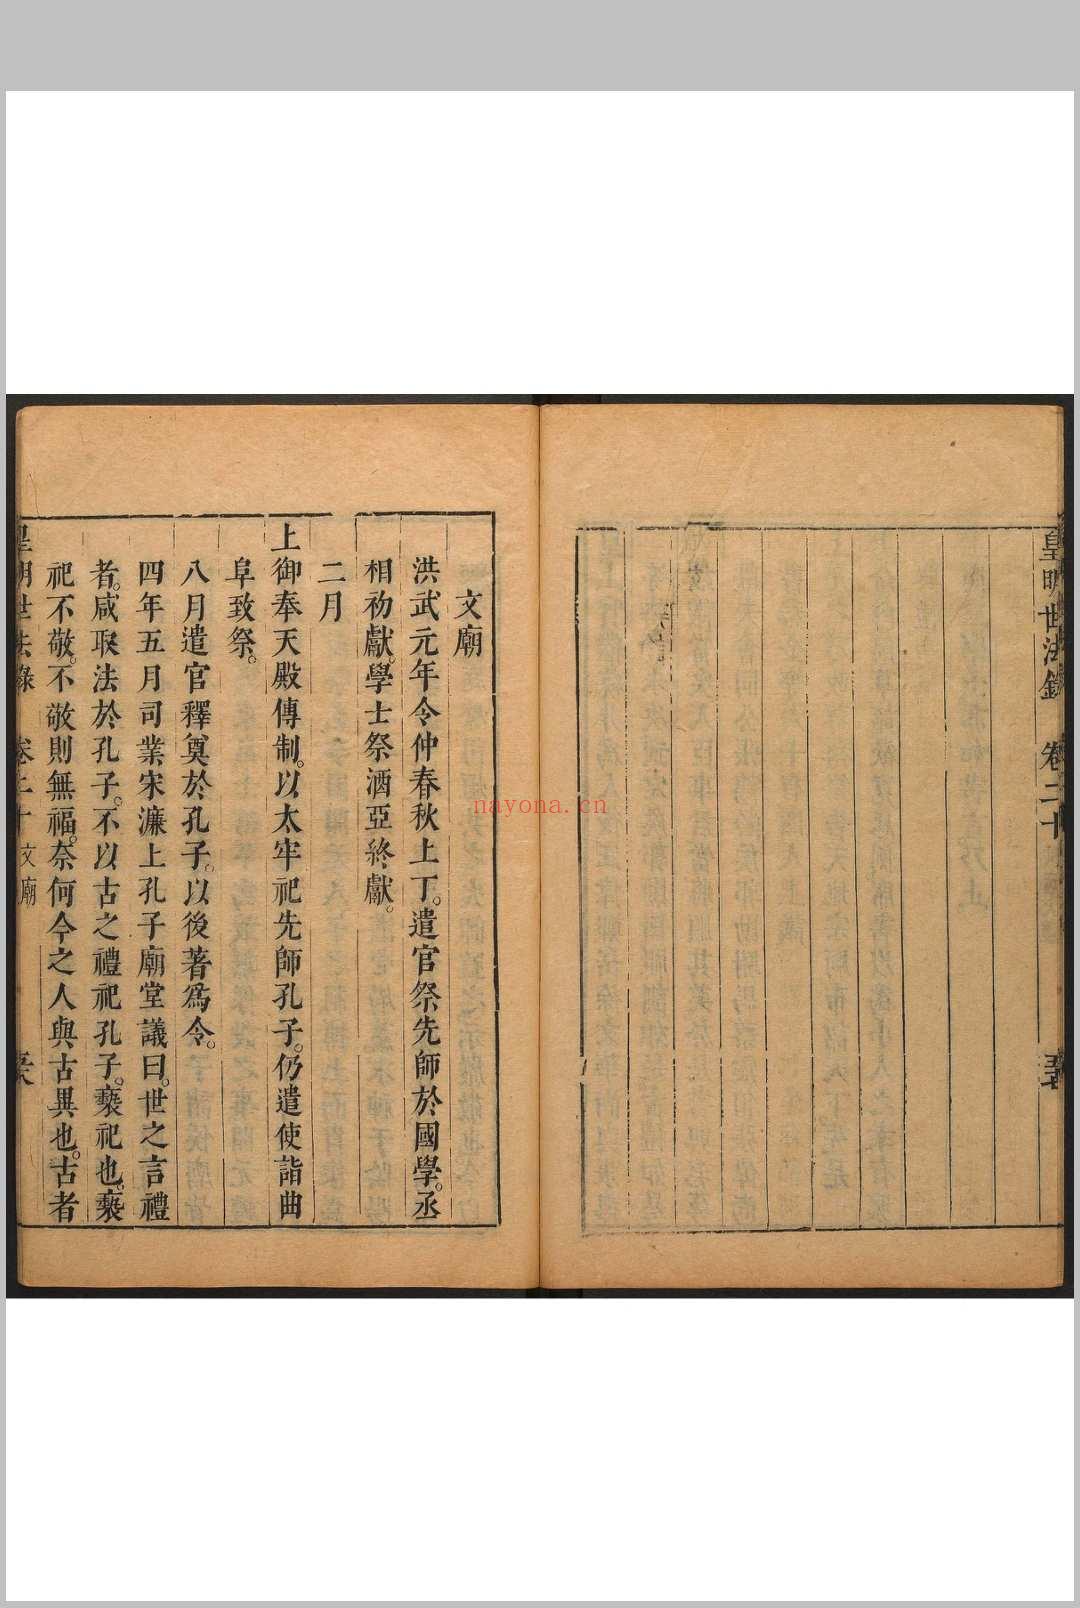 皇明世法錄 卷二十
文廟
洪武元年令仲春秋上丁。遣官祭先師於國學。丞
相初獻。學士祭酒亞終獻。
二月
上御奉天殿傳制。以太牢祀先師孔子。仍遣使詣曲
阜致祭。
八月遣官釋奠於孔子。以後著爲令。
四年五月司業宋濂上孔子廟堂議曰。世之言禮
者。咸取法於孔子。不以古之禮祀孔子。褻祀也。褻
祀不敬。不敬則無福。奈何今之人與古異也。古者
皇明世法錄 卷二十 文廟
nayona.cn